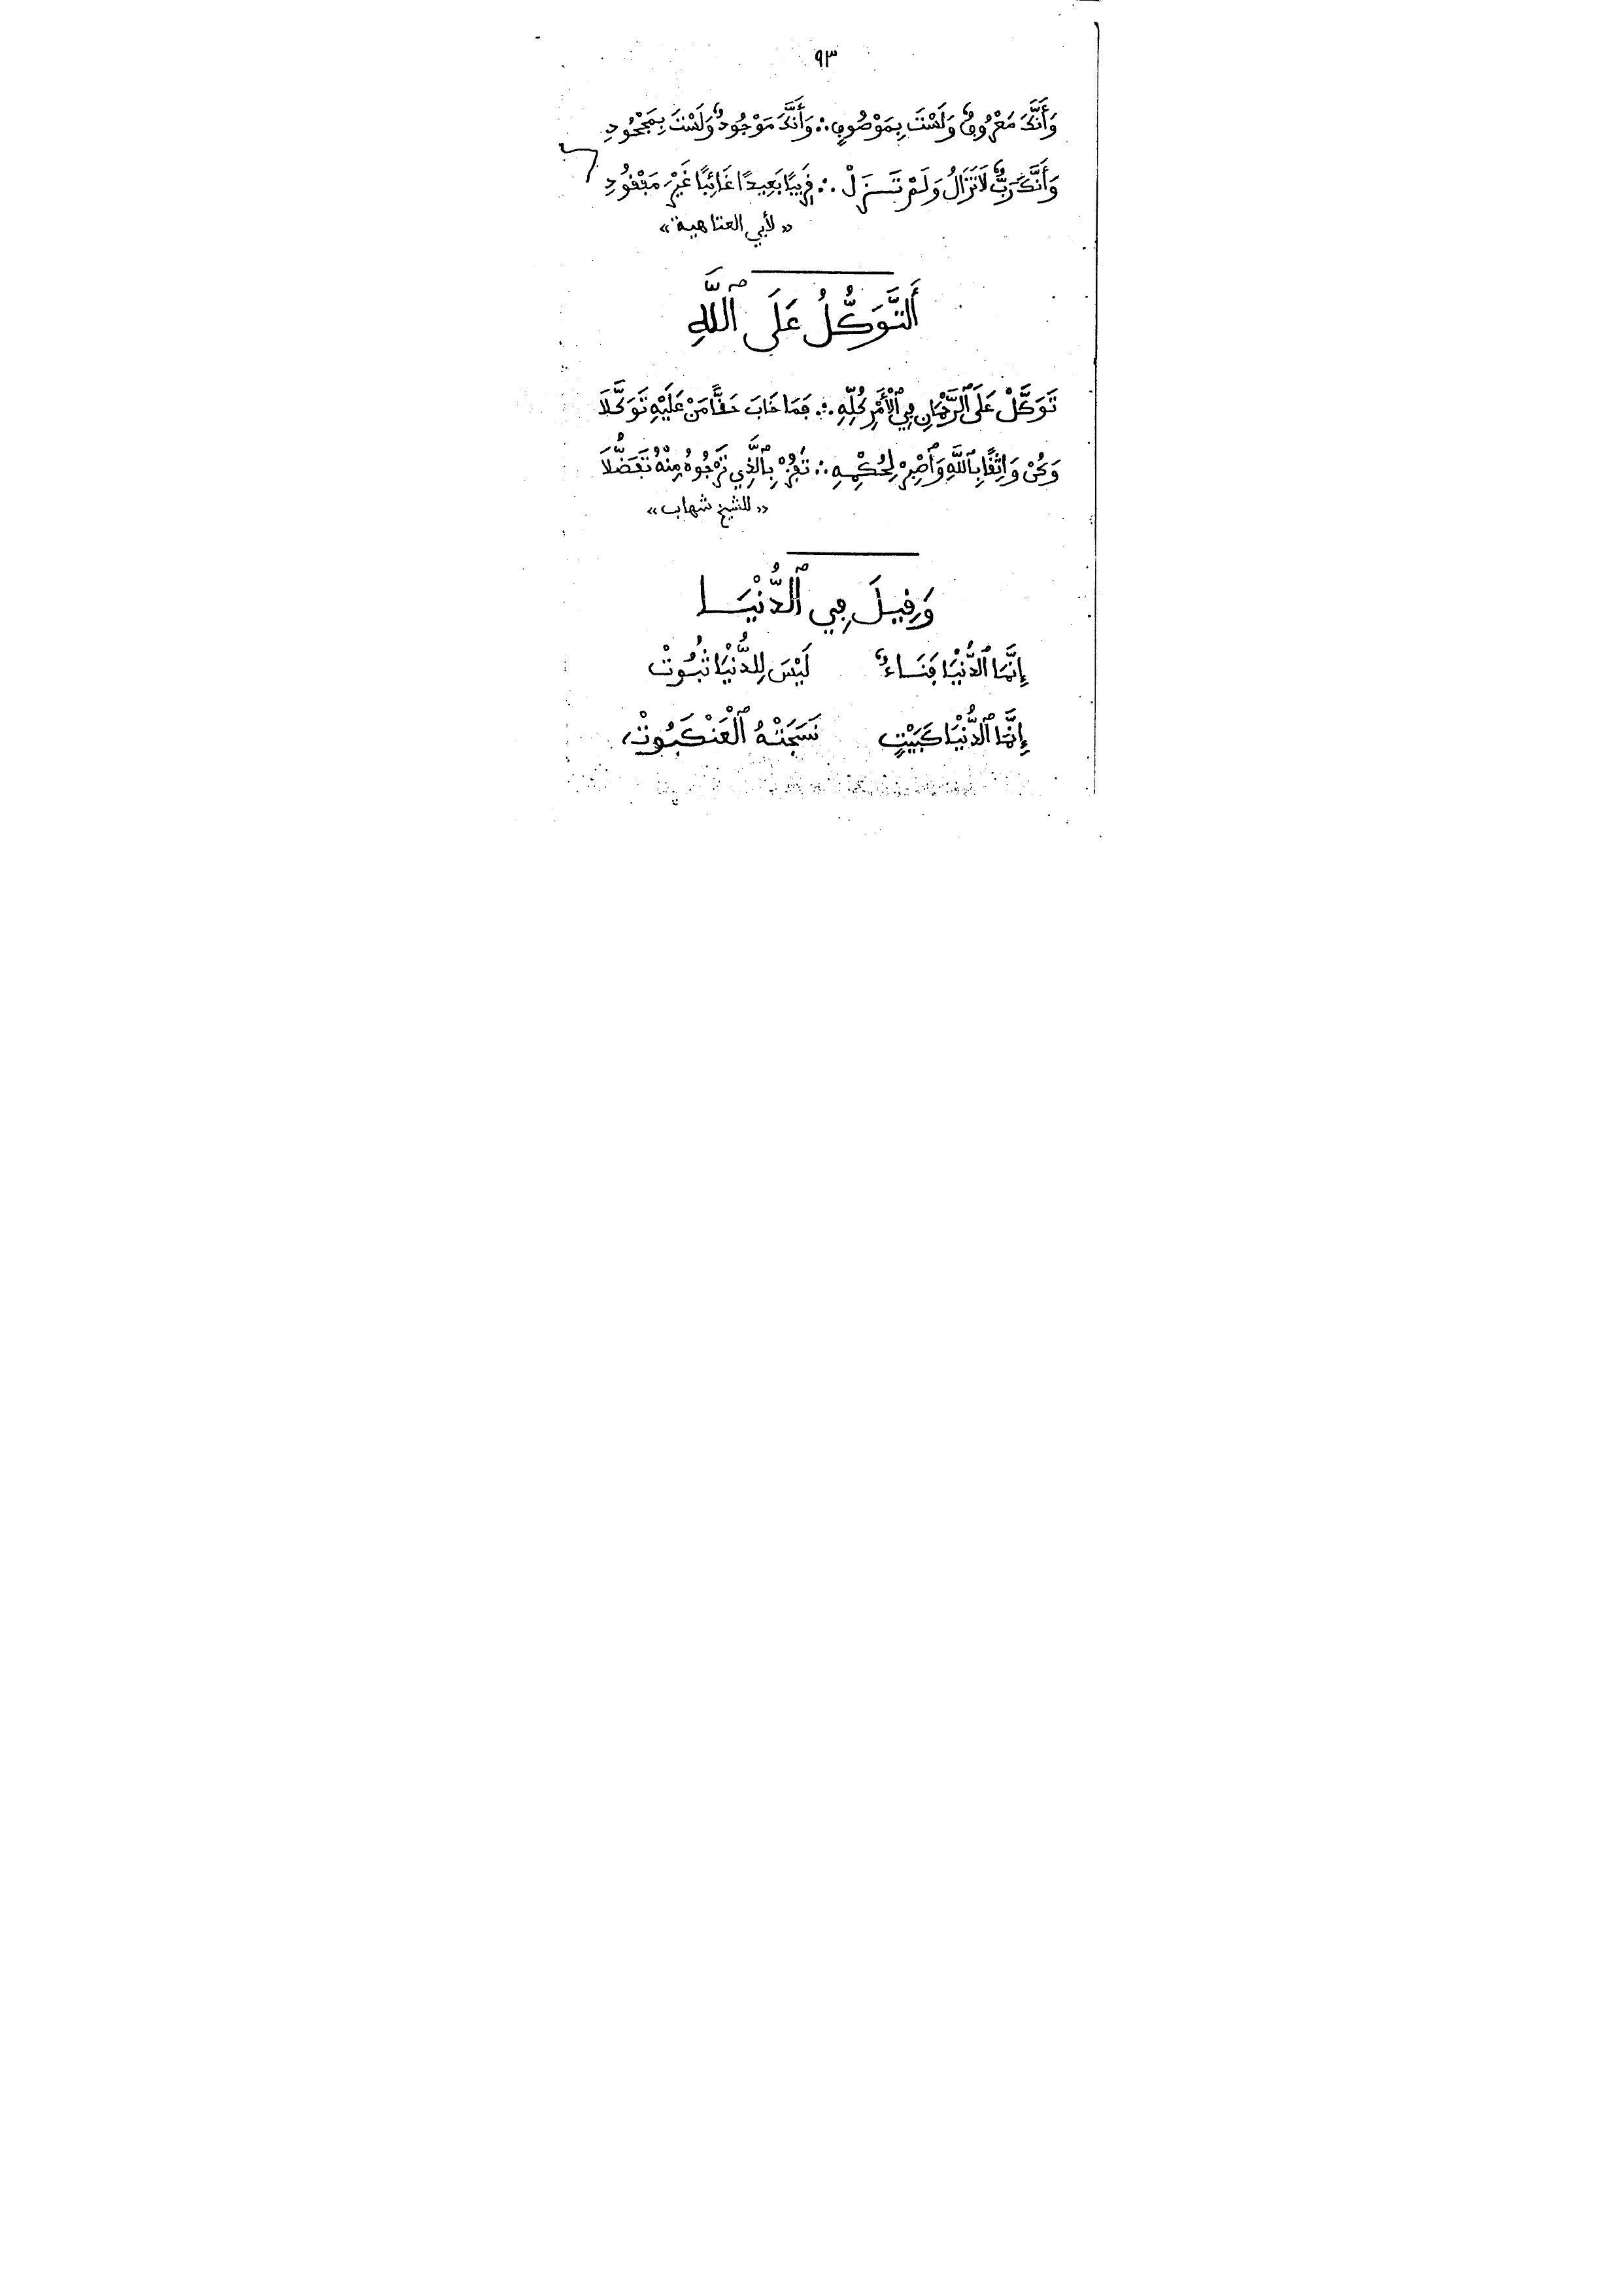 ٩٣
وَأَنَّكَ مَعْرُوفٌ وَلَسْتَ بِمَوْصُوفٍ ∴ وَأَنَّكَ مَوْجُودٌ وَلَسْتَ بِمَجْحُودِ
وَأَنَّكَ رَبٌّ لَا تَزَالُ وَلَمْ تَــزَلْ ∴ قَرِيبًا بَعِيدًا غَائِبًا غَيْرَ مَفْقُودِ
«لأبي العتاهية»
أَلتَّوَكُّلُ عَلَى ٱللَّهِ
تَوَكَّلْ عَلَى ٱلرَّحْمَانِ فِي ٱلْأَمْرِ كُلِّهِ ∴ فَمَا خَابَ حَقًّا مَنْ عَلَيْهِ تَوَكَّلَا
وَكُنْ وَاثِقًا بِٱللَّهِ وَٱصْبِرْ لِحُكْمِهِ ∴ تَفُزْ بِٱلَّذِي تَرْجُوهُ مِنْهُ تَفَضُّلَا
«للشيخ شهاب»
وَقِيلَ فِي ٱلدُّنْيَــا
إِنَّمَا ٱلدُّنْيَا فَنَــاءٌ لَيْسَ لِلدُّنْيَا ثُبُوتْ
إِنَّمَا ٱلدُّنْيَا كَبَيْتٍ نَسَجَتْهُ ٱلْعَنْكَبُوتْ